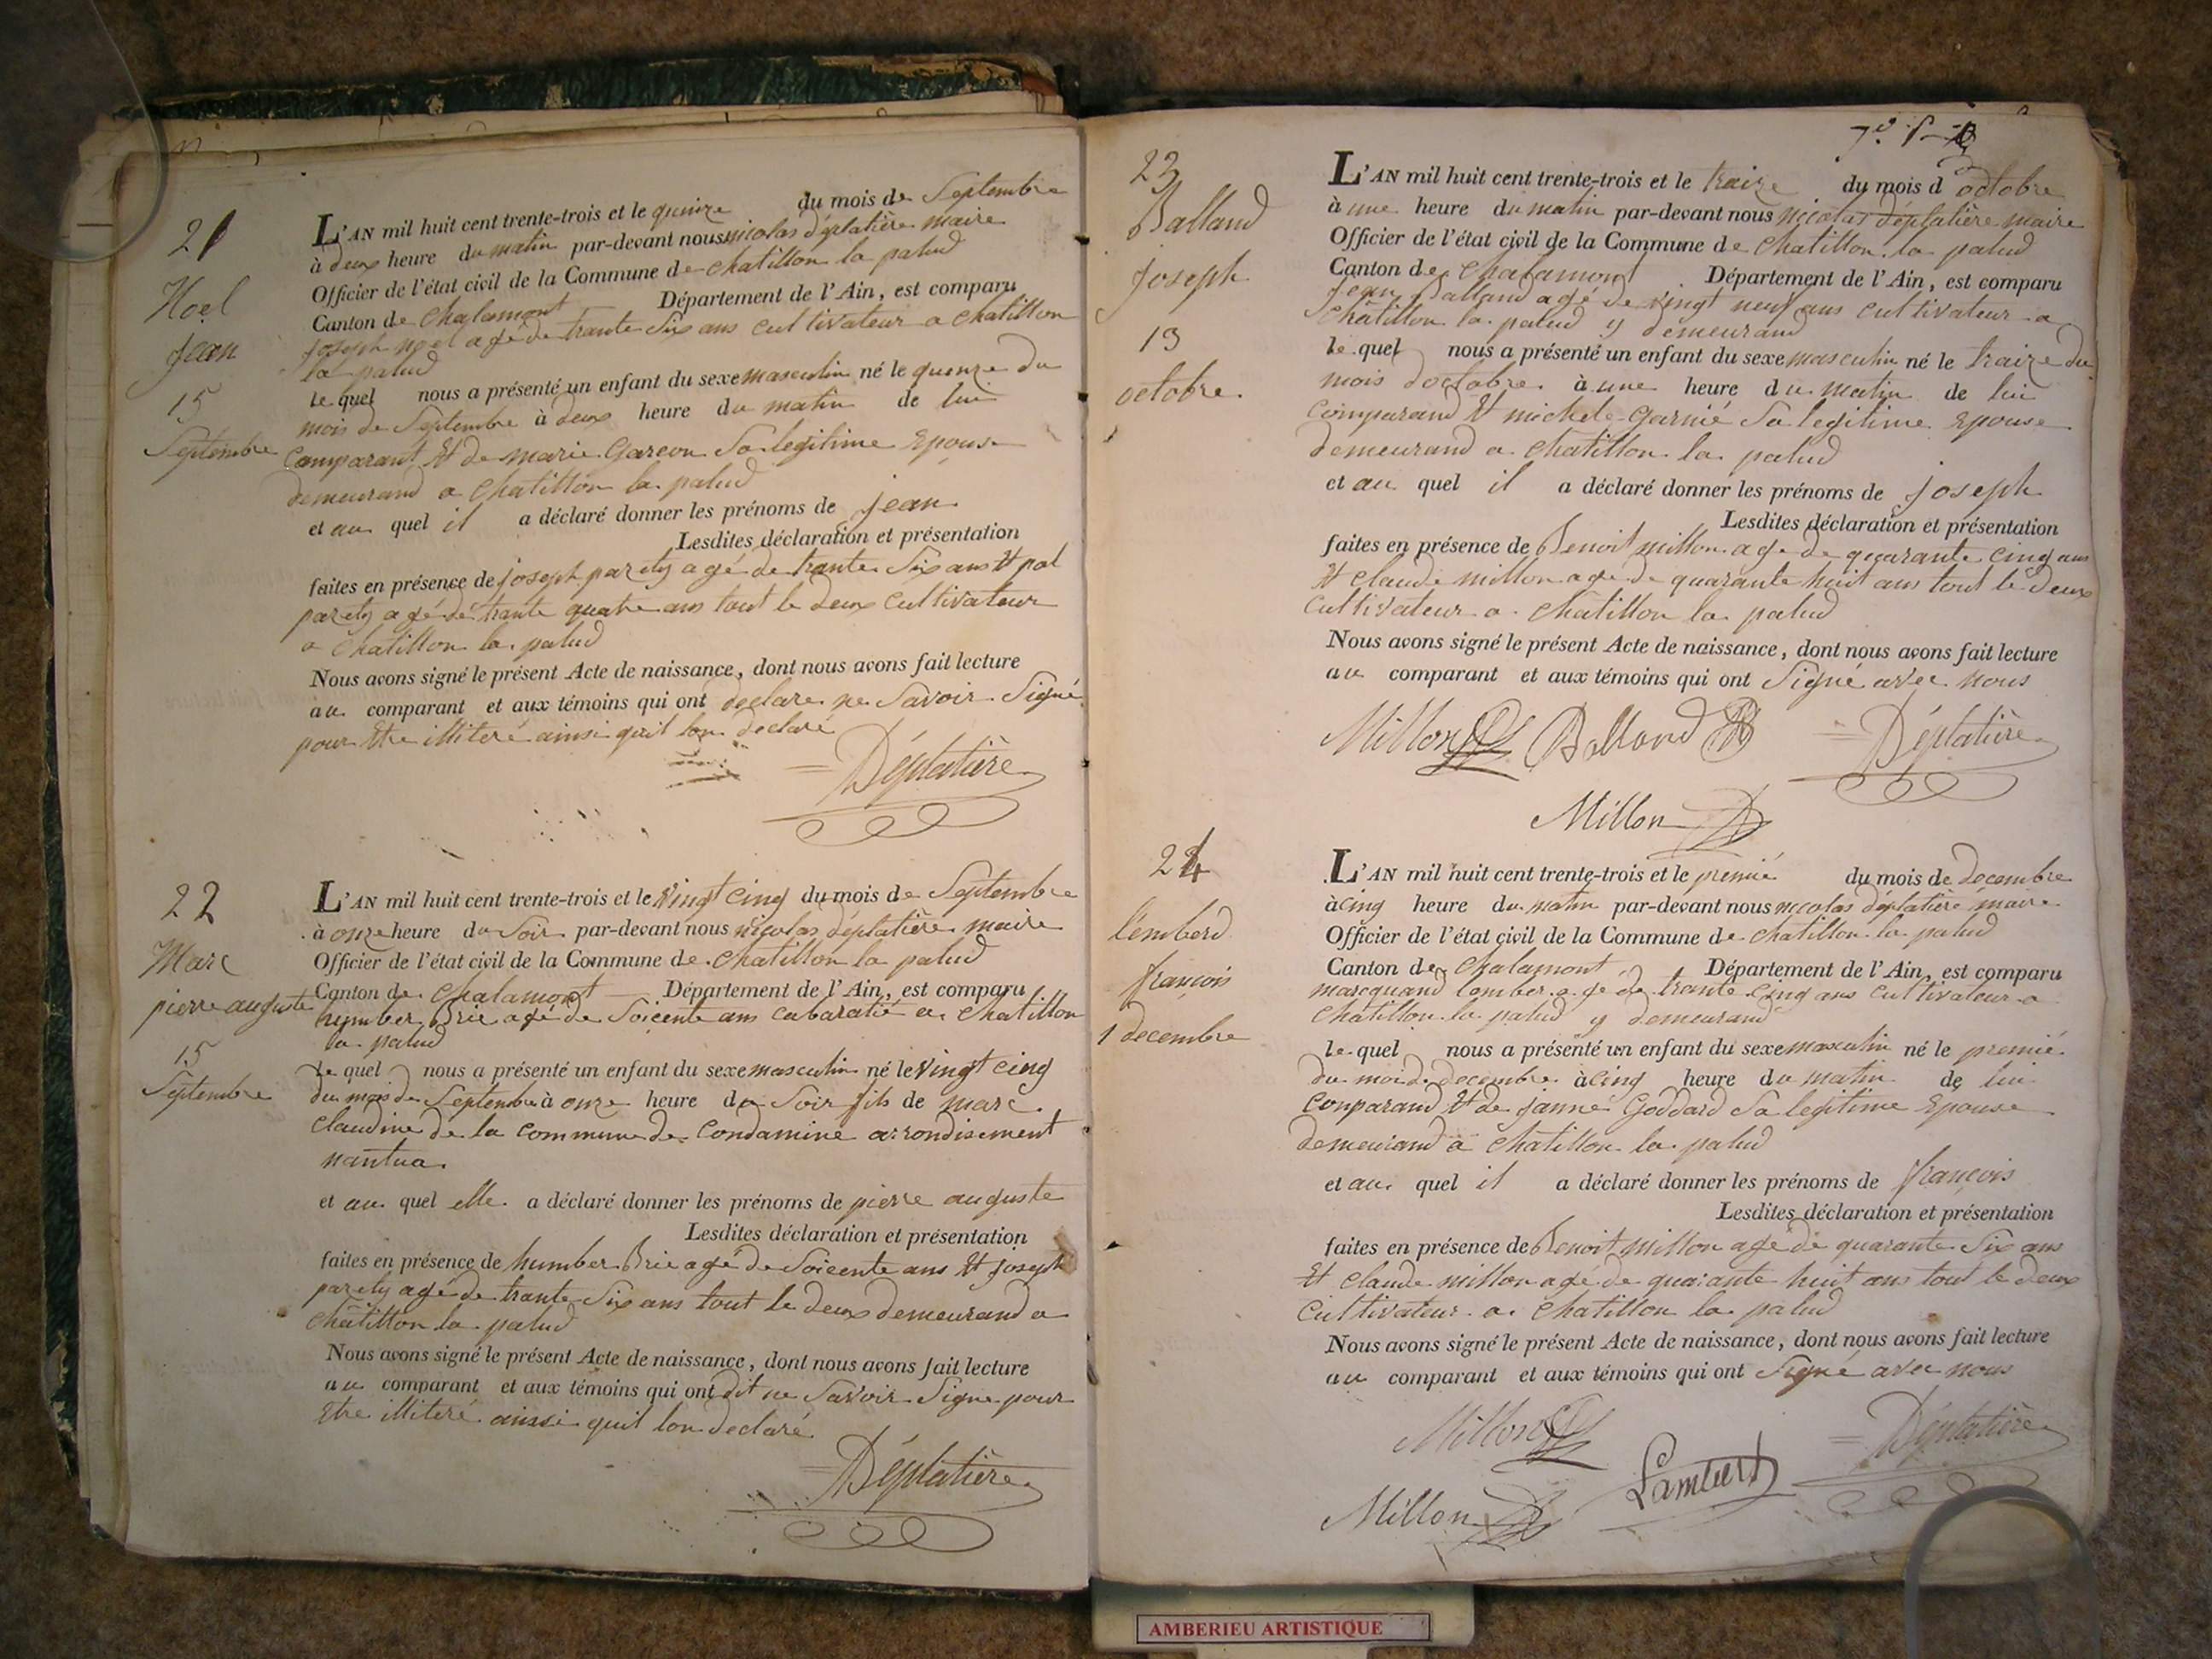 21
Noel
jean
15
Septembre
L'AN mil huit cent trente-trois et le quinze du mois de Septembre
à deux heure du matin par-devant nous nicolas déplatière maire
Officier de l'état civil de la Commune de chatillon la palud
Canton de chalamont Département de l'Ain, est comparu
joseph noel agé de trante Six ans cultivateur a chatillon
la palud
le quel nous a présenté un enfant du sexe masculin né le quenze du
mois de Septembre à deux heure du matin de lui
Comparant Et de marie Garcon Sa legitime Epouse
demeurand a chatillon la palud
et au quel il a déclaré donner les prénoms de jean
Lesdites déclaration et présentation
faites en présence de joseph parety agé de trante Six ans Et pol
parety agé de trante quatre ans tout le deux Cultivateur
a chatillon la palud
Nous avons signé le présent Acte de naissance, dont nous avons fait lecture
au comparant et aux témoins qui ont declare ne Savoir Signé
pour Etre illiteré ainsi quil lon declaré
Déplatière
22
Marc
pierre auguste
15
Septembre
L'AN mil huit cent trente-trois et le vingt cinq du mois de Septembre
à onze heure du Soir par-devant nous nicolas déplatière maire
Officier de l'état civil de la Commune de chatillon la palud
Canton de chalamont Département de l'Ain, est comparu
humber Brie agé de Soicente ans cabaratié a chatillon
la palud
le quel nous a présenté un enfant du sexe masculin né le vingt cinq
du mois de Septembre à onze heure du Soir fils de marc
claudine de la commune de Condamine arrondisement
nantua
et au quel elle a déclaré donner les prénoms de pierre auguste
Lesdites déclaration et présentation
faites en présence de humber Brie agé de Soicente ans Et joseph
parety agé de trante Six ans tout le deux demeurand a
chatillon la palud
Nous avons signé le présent Acte de naissance, dont nous avons fait lecture
au comparant et aux témoins qui ont dit ne Savoir Signe pour
Etre illiteré ainsi quil lon declaré
Déplatière
23
Balland
joseph
13
octobre
L'AN mil huit cent trente-trois et le traize du mois d'octobre
à une heure du matin par-devant nous nicolas déplatière maire
Officier de l'état civil de la Commune de chatillon la palud
Canton de chalamont Département de l'Ain, est comparu
jean Balland agé de vingt neuf ans cultivateur a
chatillon la palud y demeurand
le quel nous a présenté un enfant du sexe masculin né le traize du
mois doctobre à une heure du matin de lui
Comparand Et michele Garnié Sa legitime Epouse
demeurand a chatillon la palud
et au quel il a déclaré donner les prénoms de joseph
Lesdites déclaration et présentation
faites en présence de Benoit millon agé de quarante cinq ans
Et claude millon agé de quarante huit ans tout le deux
cultivateur a chatillon la palud
Nous avons signé le présent Acte de naissance, dont nous avons fait lecture
au comparant et aux témoins qui ont Signé avec nous
Millon Balland Déplatière
Millon
24
Lemberd
françois
1 decembre
L'AN mil huit cent trente-trois et le premié du mois de decembre
à cinq heure du matin par-devant nous nicolas déplatière maire
Officier de l'état civil de la Commune de chatillon la palud
Canton de chalamont Département de l'Ain, est comparu
marcquand lomber agé de trante cinq ans cultivateur a
chatillon la palud y demeurand
le quel nous a présenté un enfant du sexe masculin né le premié
du moi de decembre à cinq heure du matin de lui
Conparand Et de janne Goddard Sa legitime Epouse
demeurand a chatillon la palud
et au quel il a déclaré donner les prénoms de françois
Lesdites déclaration et présentation
faites en présence de Benoit millon agé de quarante Six ans
Et claude millon agé de quarante huit ans tout le deux
cultivateur a chatillon la palud
Nous avons signé le présent Acte de naissance, dont nous avons fait lecture
au comparant et aux témoins qui ont Signé avec nous
Millon Déplatière
Lambert
Millon
AMBERIEU ARTISTIQUE